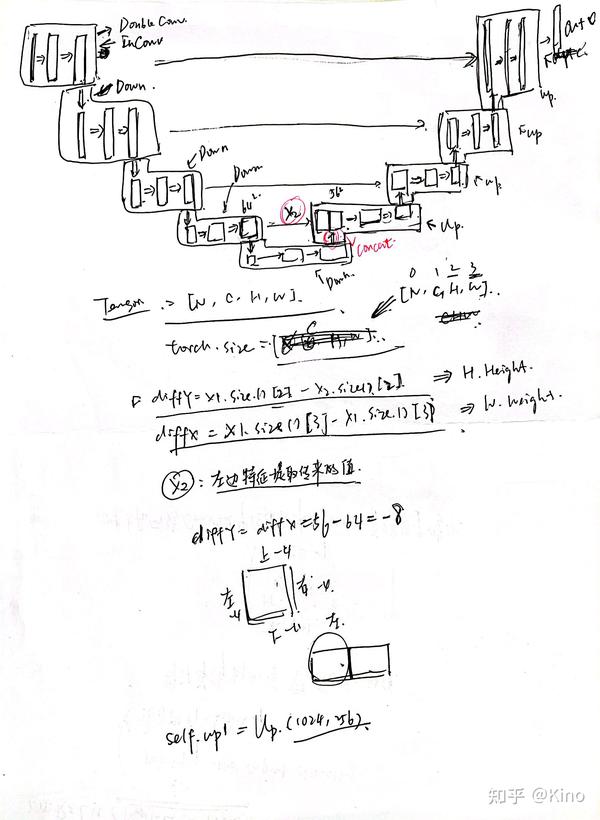 Double Conv.
InConv
Down
Down
Down
64².
X₂
56²
concat.
Down.
Out
up
up
up.
Up.
Tensor :-> [N, C, H, W].
0 1 2 3
[N, C, H, W].
torch.size = [ C H, W].
diffY = x1.size()[2] - x2.size()[2] => H. Height.
diffX = x1.size()[3] - x1.size()[3] => W. Weight.
X₂ : 左边特征提取传来的值.
diffY = diffX = 56 - 64 = -8
上-4
左 -4
右-4
下-4
左.
self.up1 = Up.(1024, 256)
知乎 @Kino